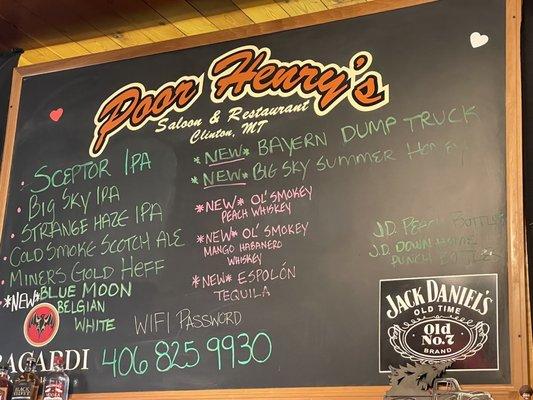 Poor Henry's
Saloon & Restaurant
Clinton, MT
SCEPTOR IPA
BIG SKY IPA
STRANGE HAZE IPA
COLD SMOKE SCOTCH ALE
MINERS GOLD HEFF
*NEW* BLUE MOON
BELGIAN
WHITE
*NEW* BAYERN DUMP TRUCK
*NEW* BIG SKY SUMMER HONEY
*NEW* OL' SMOKEY
PEACH WHISKEY
*NEW* OL' SMOKEY
MANGO HABANERO
WHISKEY
*NEW* ESPOLÓN
TEQUILA
WIFI PASSWORD
406 825 9930
J.D. PEACH BOTTLES
J.D. DOWNHOME
PUNCH BOTTLES
BACARDI
JACK DANIEL'S
OLD TIME
Old
No. 7
BRAND